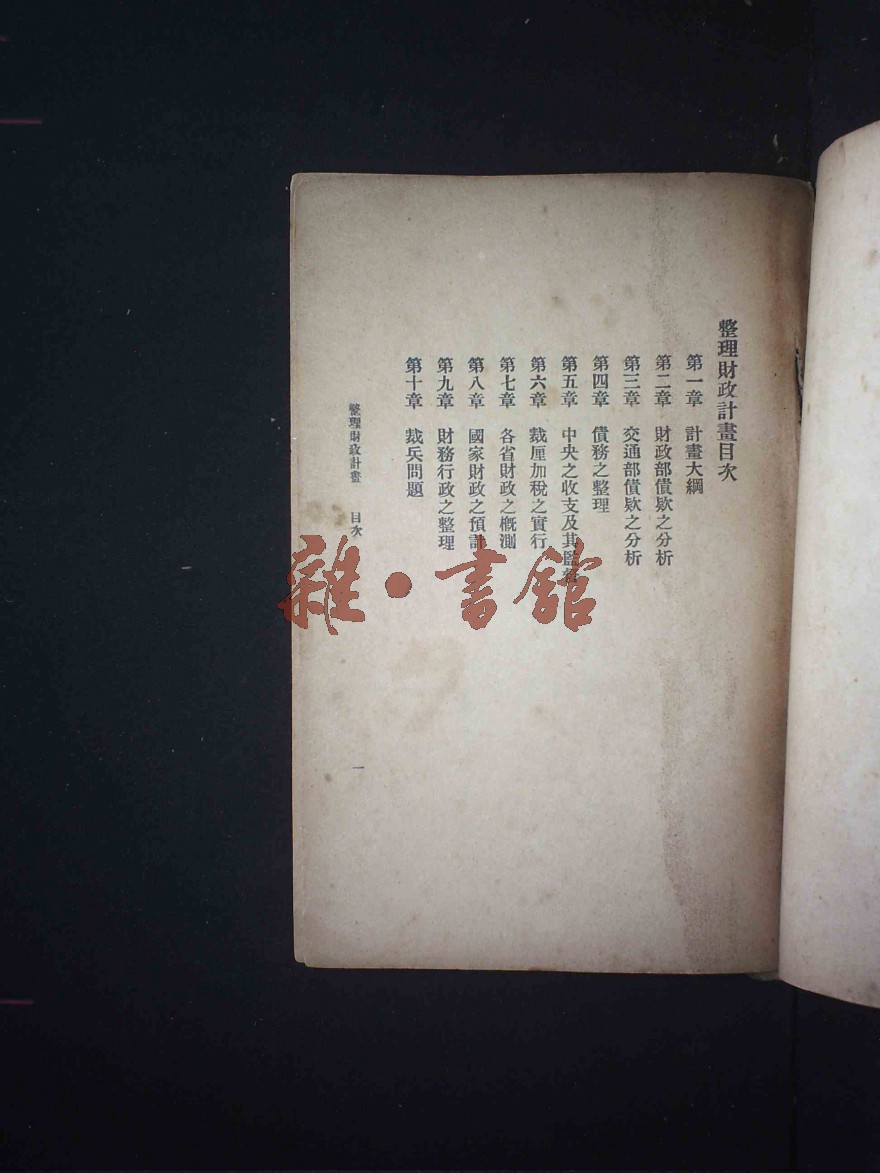 整理財政計畫目次
第一章　計畫大綱
第二章　財政部債欵之分析
第三章　交通部債欵之分析
第四章　債務之整理
第五章　中央之收支及其監督
第六章　裁厘加稅之實行
第七章　各省財政之概測
第八章　國家財政之預計
第九章　財務行政之整理
第十章　裁兵問題
整理財政計畫　目次
一
雜·書館